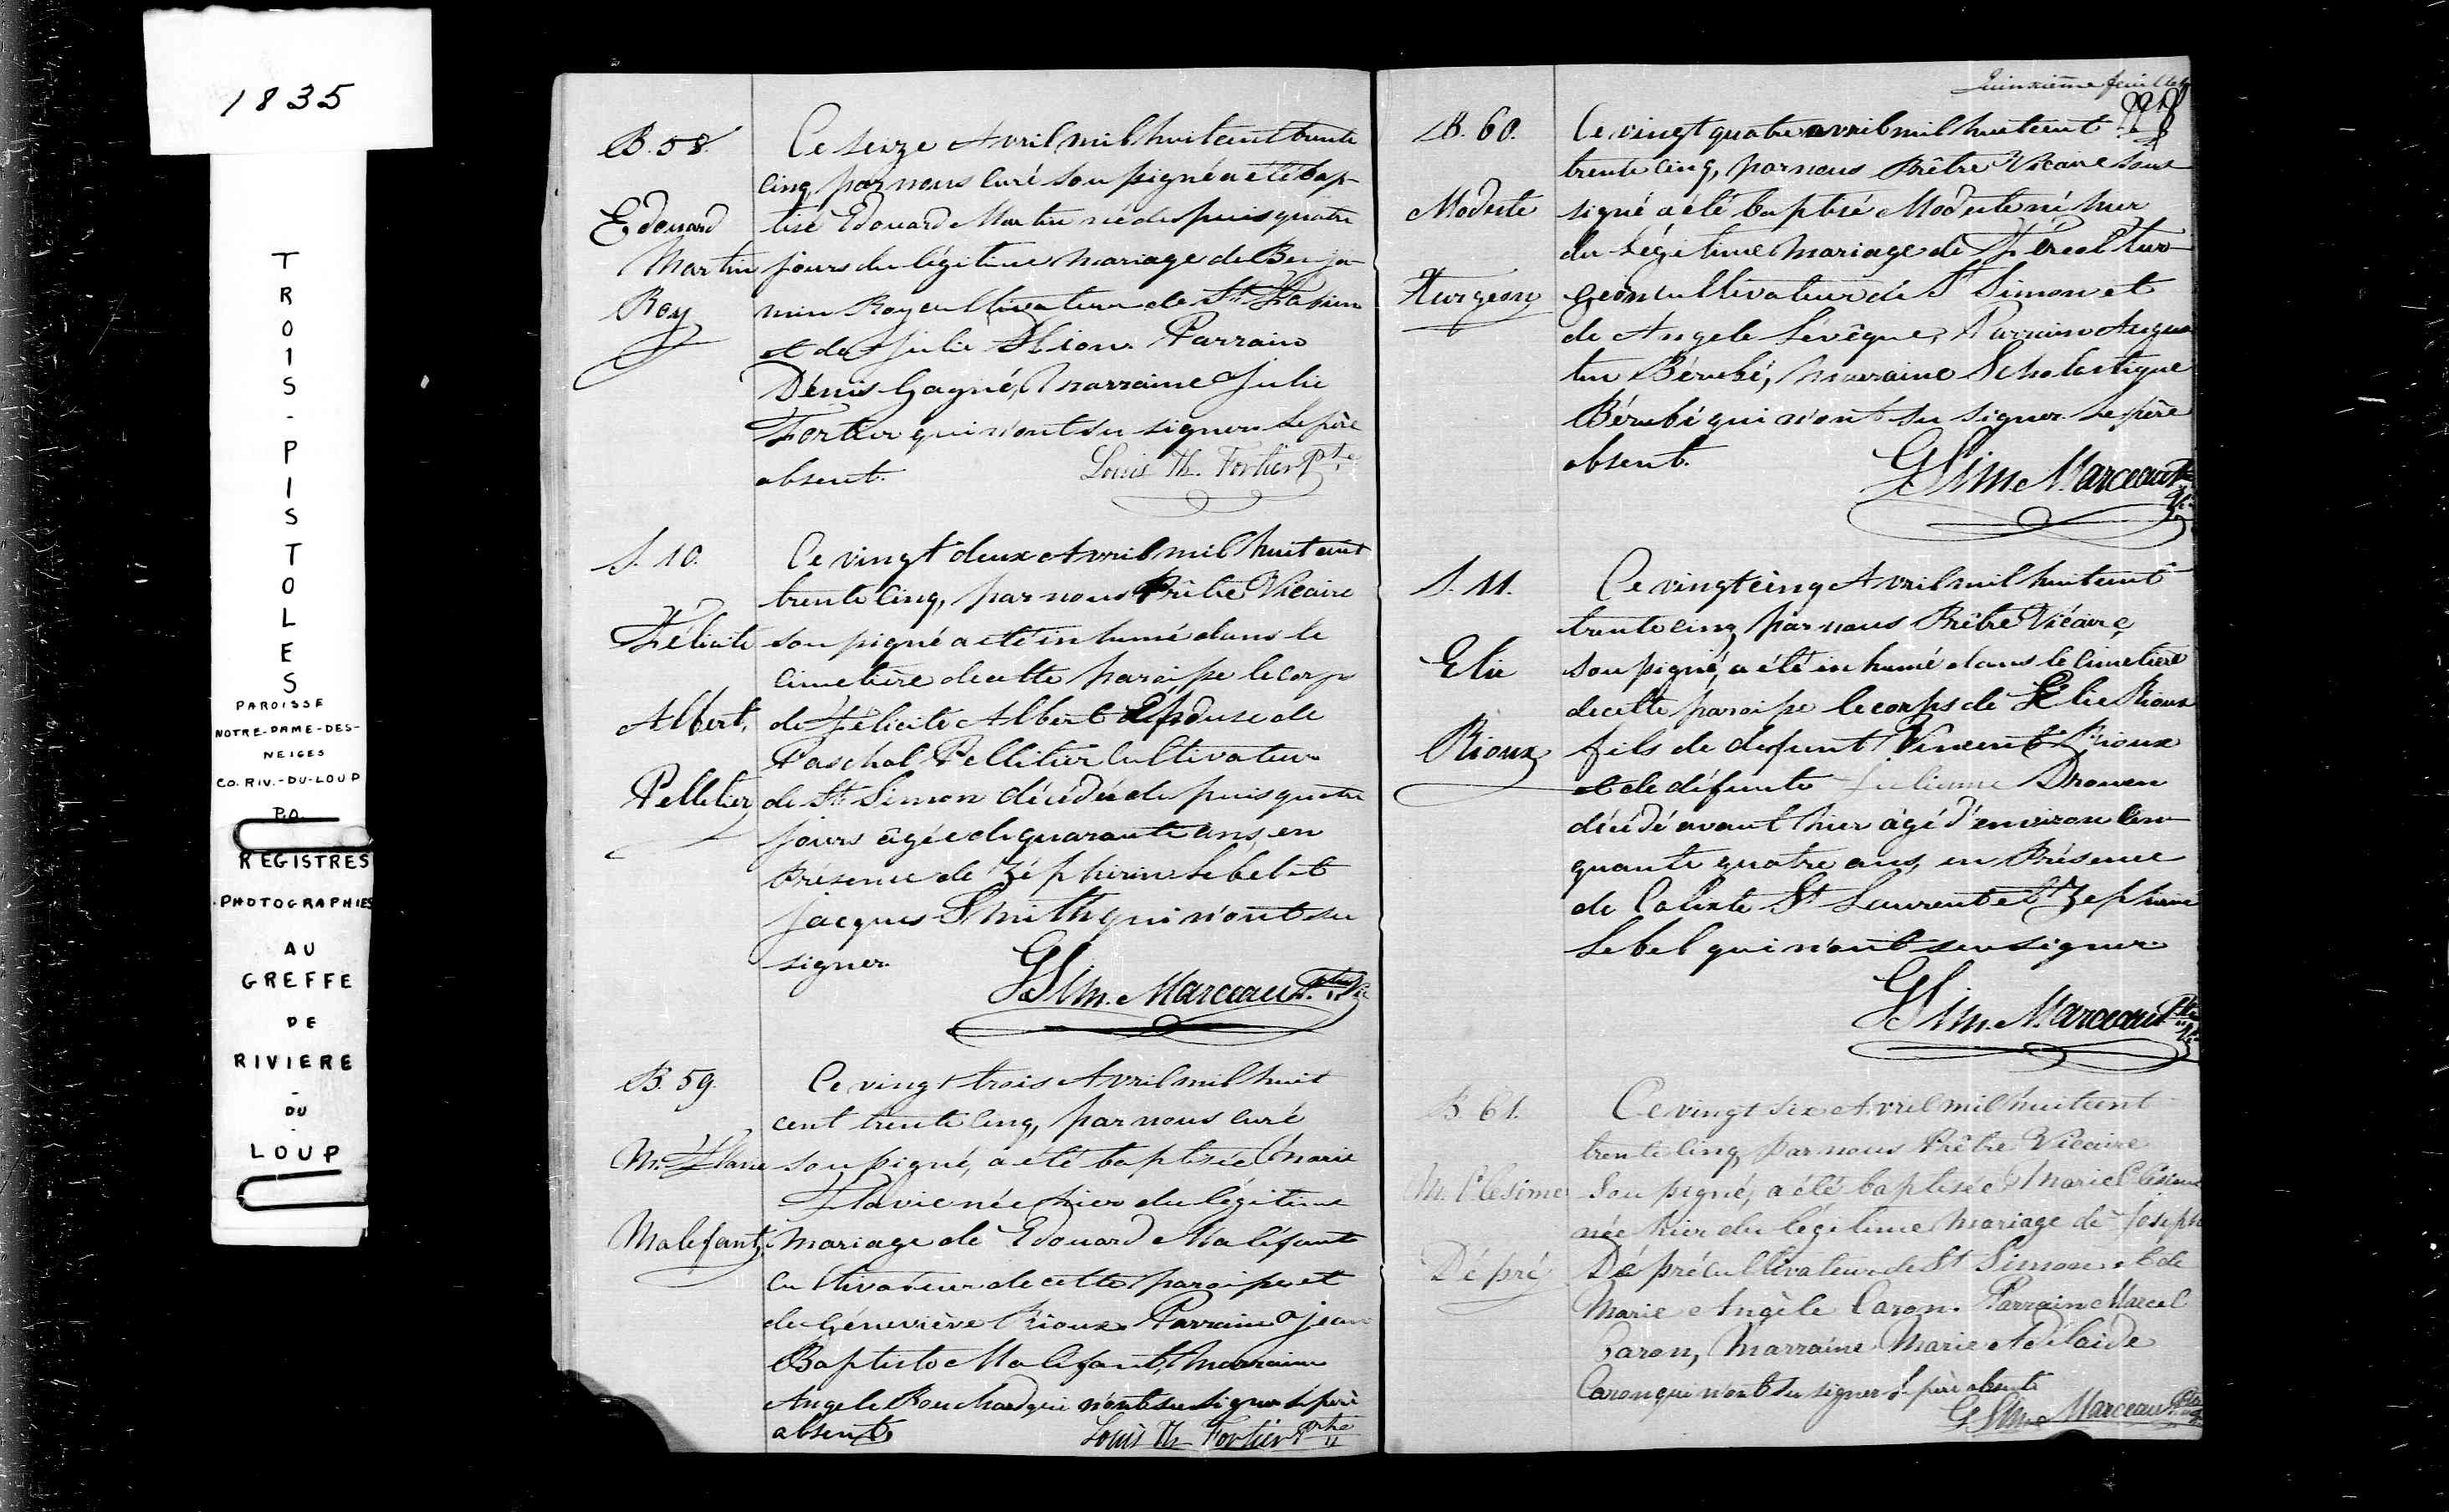 1835
TROIS-PISTOLES
PAROISSE
NOTRE-DAME-DES-
NEIGES
CO. RIV.-DU-LOUP
P.Q.
REGISTRES
PHOTOGRAPHIES
AU
GREFFE
DE
RIVIERE
-
DU
-
LOUP
B. 58.
Edouard
Martin
Roy
Ce seize Avril mil huit cent trente
cinq, par nous Curé soussigné a été bap-
tisé Edouard Martin né depuis quatre
jours du légitime mariage de Benja-
min Roy cultivateur de St Fabien
et de Julie Dion. Parrain
Dénis Gagné, Marraine Julie
Fortier qui n'ont su signer. Le père
absent.
Louis Th. Fortier Ptre
S. 10.
Félicité
Albert,
Pelletier
Ce vingt deux Avril mil huit cent
trente cinq, par nous Prêtre Vicaire
soussigné a été inhumé dans le
cimetière de cette paroisse le corps
de Félicité Albert Épouse de
Paschal Pelletier Cultivateur
de St Simon décédée depuis quatre
jours âgée de quarante ans, en
Présence de Zéphirin Lebel et
Jacques Smith qui n'ont su
signer.
G Sim. Marceau Ptre Vic
B. 59.
M. Flavie
Malefant
Ce vingt trois Avril mil huit
cent trente cinq, par nous curé
soussigné, a été baptisée Marie
Flavie née hier du légitime
mariage de Edouard Maléfant
Cultivateur de cette paroisse et
de Géneviève Rioux. Parrain Jean
Baptiste Malefant, Marraine
Angele Bouchard qui n'ont su signer le père
absent
Louis Th Fortier Ptre
Quinzième feuillet
B. 60.
Modeste
Turgeon
Ce vingt quatre avril mil huit cent
trente cinq, par nous Prêtre Vicaire sous
signé a été baptisé Modeste né hier
du Légitime Mariage de Féréol Tur-
geon cultivateur de St Simon et
de Angele Levêque, Parrain Augus
tin Bérubé, Marraine Scholastique
Bérubé qui n'ont su signer. Le père
absent.
G Sim Marceau Ptre
Vic
S. 11.
Elie
Rioux
Ce vingt cinq Avril mil huit cent
trente cinq, par nous Prêtre Vicaire
soussigné, a été inhumé dans le Cimetière
de cette paroisse le corps de Elie Rioux
fils de défunt Vincent Rioux
et de défunte Julienne Drouen
décédé avant hier âgé d'environ Cin-
quante quatre ans, en Présence
de Calixte St Laurent et Zephirin
Lebel qui n'ont su signer.
G Sim. Marceau Ptre
Vic
B 61.
M. Elesime
Dépré
Ce vingt six Avril mil huit cent
trente cinq par nous Prêtre Vicaire
soussigné, a été baptisée Marie Elésime
née hier du légitime mariage de Joseph
Dépré Cultivateur de St Simon et de
Marie Angèle Caron. Parrain Marcel
Caron, Marraine Marie Adelaide
Caron qui n'ont su signer. Le père absent
G Sim Marceau Ptre